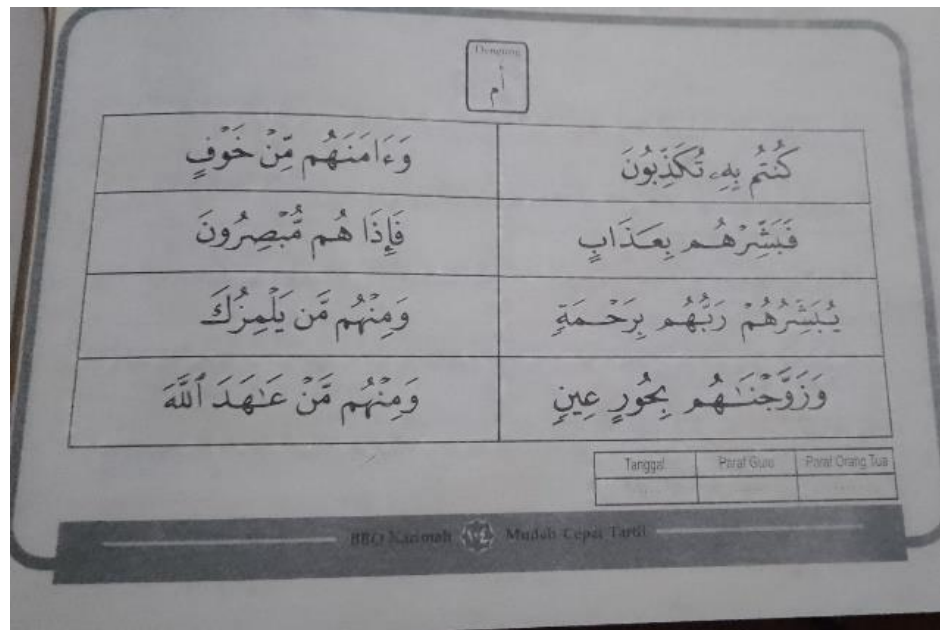 Dengung
أم
كُنتُم بِهِۦ تُكَذِّبُونَ
وَءَامَنَهُم مِّنْ خَوْفٍ
فَبَشِّرْهُم بِعَذَابٍ
فَإِذَا هُم مُّبْصِرُونَ
يُبَشِّرُهُمْ رَبُّهُم بِرَحْمَةٍ
وَمِنْهُم مَّن يَلْمِزُكَ
وَزَوَّجْنَـٰهُم بِحُورٍ عِينٍ
وَمِنْهُم مَّنْ عَـٰهَدَ ٱللَّهَ
Tanggal Paraf Guru Paraf Orang Tua
Mudah Cepat Tartil